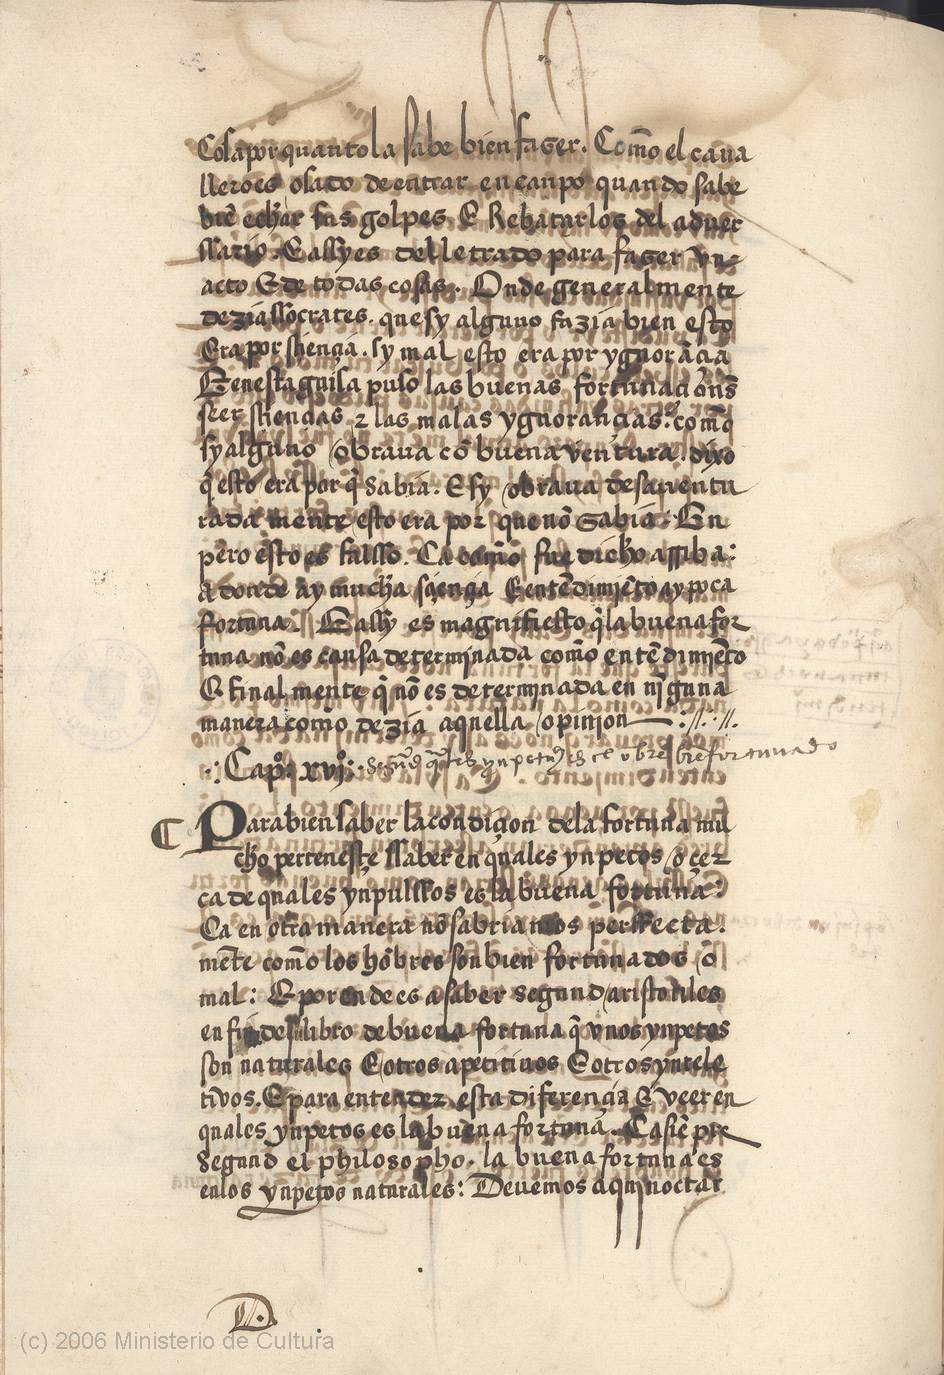 Cosa por quanto la sabe bien fazer. Como el cava
llero es osado de entrar en canpo quando sabe
bie͂ echar sus golpes E Rebatarlos del adver
ssario. E assy es del letrado para fazer un
acto E de todas cosas. Onde generalmente
dezia ssocrates. que sy alguno fazia bien esto
Era por sçiençia. sy mal esto era por ygnora͂cia
E en esta guisa puso las buenas fortunacio͂ns
seer sçiençias τ las malas ygnorançias. como͂
sy alguno obrava co͂ buena ventura. dixo
q͂ esto era por q͂ sabia. E sy obrava desaventu
radamente esto era por que no͂ sabia. En
pero esto es falsso. Ca como͂ fue dicho arriba:
A donde ay mucha sçiençia E ente͂dimie͂to ay poca
fortuna. E assy es magnifiesto q͂ la buena for
tuna no͂ es causa determinada como͂ ente͂dimie͂to
E finalmente q͂ no͂ es determinada en ni͂guna
manera como͂ dezia aquella opinion
Cap.º xvjº. segu͂d q͂les ynpetus es el obre bie͂ fortunado
Para bien saber la condiçion de la fortuna mu
cho perteneşçe ssaber en quales ynpetos o çer
ca de quales ynpulssos es la buena fortuna:
Ca en otra manera no͂ sabriamos perfecta
me͂te como͂ los ho͂bres son bien fortunados o͂
mal: E por ende es a saber segund aristotiles
en fin del libro de buena fortuna q͂ unos ynpetos
son naturales E otros apetitivos E otros yntele
tivos. E para entender esta diferençia E veer en
quales ynpetos es la buena fortuna. Ca sie͂pre
segund el philosopho. la buena fortuna es
en los ynpetos naturales: Devemos aqui noctar
(c) 2006 Ministerio de Cultura